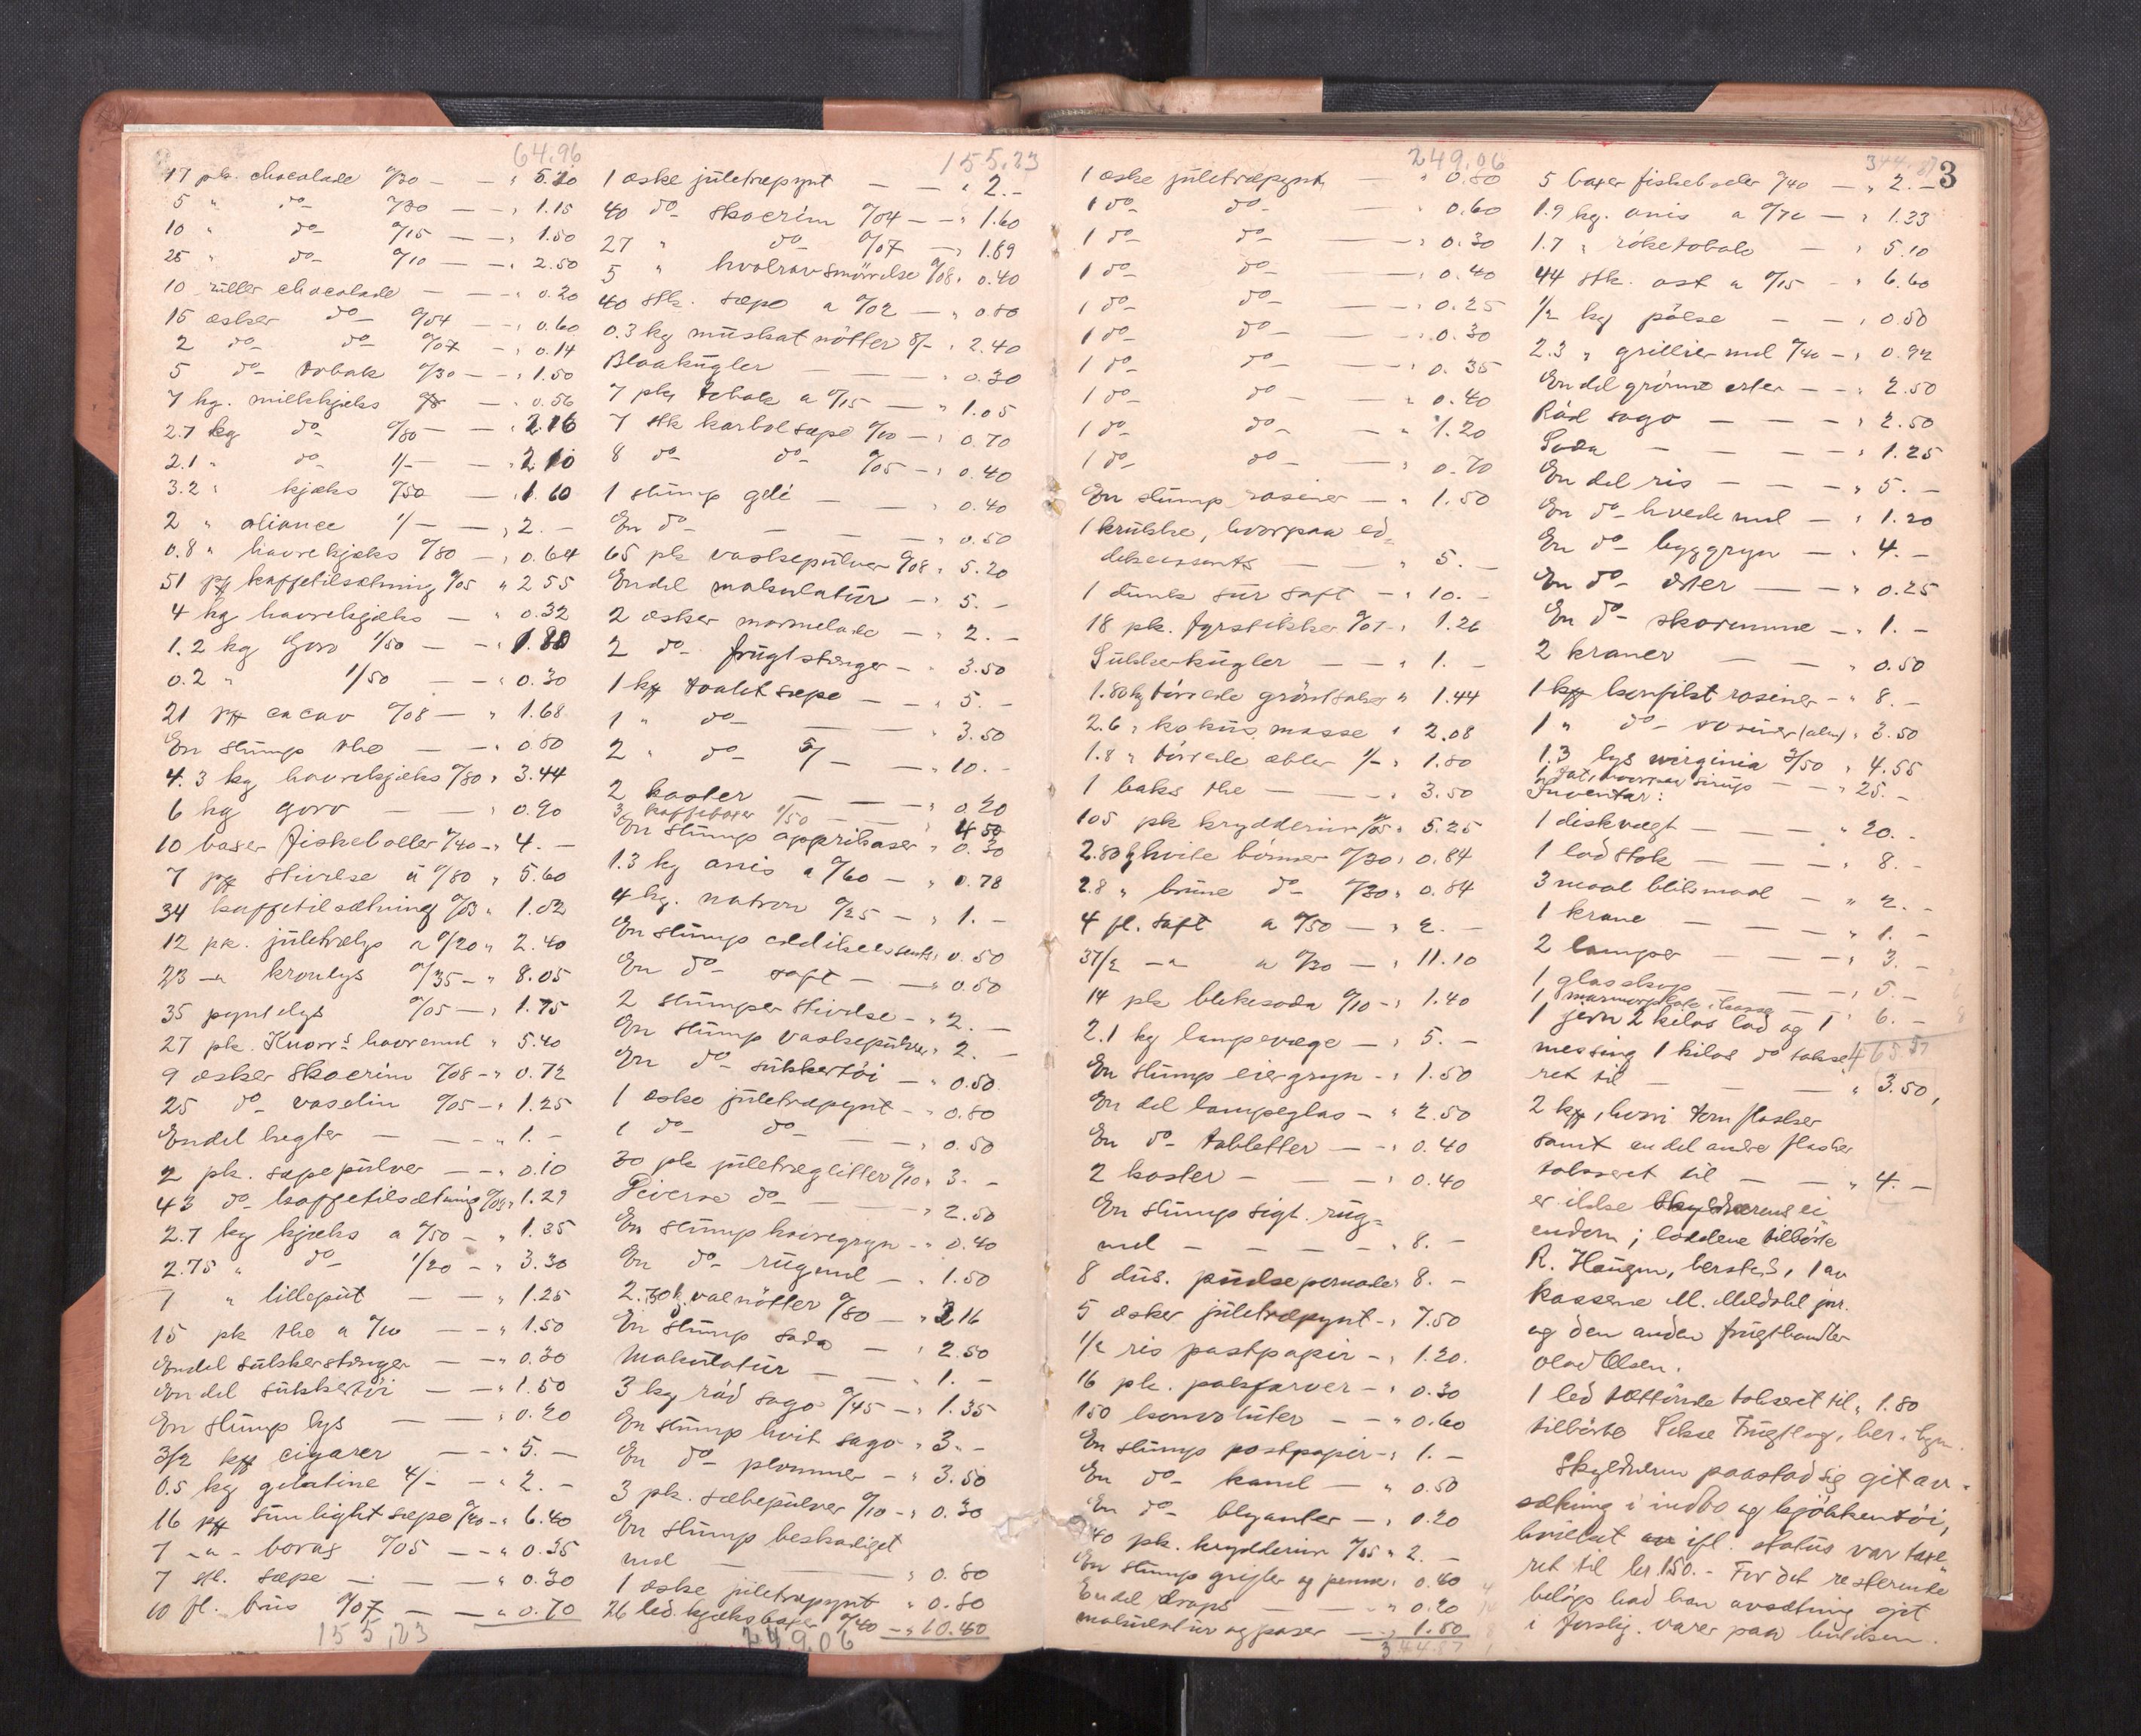 64.96
17 pk. chocolade %30 — — " 5.10
5 " do %30 — — " 1.15
10 " do %15 — — " 1.50
25 " do %10 — — " 2.50
10 ruller chocolade — — " 0.20
15 æsker do %04 — — " 0.60
2 do do %07 — " 0.14
5 do tobak %30 — — " 1.50
7 kg. milkkjæks — " 0.56
2.7 kg do %80 — — " 2.16
2.1 " do 1/- — " 2.10
3.2 " kjæks %50 — " 1.60
2 " aliance 1/- — " 2. —
0.8 " havrekjæks %80 — " 0.64
51 pk kaffetilsætning %05 " 2 55
4 kg havrekjæks — " 0.32
1.2 kg Goro 1/50 — — " 1.80
0.2 " 1/50 — — " 0.30
21 pk cacao %08 — " 1.68
En slump the — — " 0.80
4.3 kg havrekjæks %80 " 3.44
6 kg goro — — " 0.90
10 boxer fiskeboller %40 — " 4. —
7 pk stivelse a %80 " 5.60
34 kaffetilsætning %03 " 1.02
12 pk. juletrelys a %20 " 2.40
23 —"— kronlys %35 — " 8.05
35 pyntelys %05 — " 1.75
27 pk. Knorrs havremel " 5.40
9 æsker Skocrem %08 — " 0.72
25 do vaselin %05 — " 1.25
Endel hegter — — — " 1. —
2 pk. sæpepulver — — " 0.10
43 do kaffetilsætning %03 " 1.29
2.7 kg kjæks a %50 — " 1.35
2.75 " do 1/20 — " 3.30
1 " lilleput — — " 1.25
15 pk the a %10 — — " 1.50
Endel sukkerstenger — — " 0.30
Endel sukkertöi — — " 1.50
En slump lys — — " 0.20
3/2 ks cigarer — — " 5. —
0.5 kg gelatine 4/- — " 2. —
16 pk sunlight sæpe %40 — " 6.40
7 —"— borax %05 — — " 0.35
7 stk. sæpe — — — " 0.30
10 fl. brus %07 — — " 0.70
155,23
155.23
1 æske juletrepynt — — " 2. —
40 do skocrem %04 — — " 1.60
27 " do %07 — " 1.89
5 " hvalravsmörelse %08 " 0.40
40 stk. sæpe a %02 — " 0.80
0.3 kg muskatnötter 8/- " 2.40
Blaakugler — — " 0.30
7 pk tobak a %15 — " 1.05
7 stk karbolsæpe %10 — " 0.70
8 do do %05 — " 0.40
1 slump gele — — " 0.40
En do — — " 0.50
65 pk vaskepulver %08 " 5.20
Endel makulatur — " 5. —
2 æsker marmelade — " 2. —
2 do frugtstenger — " 3.50
1 ks toaletsæpe — — " 5. —
1 " do — — " 3.50
2 " do 5/- — " 10. —
2 koster — — — " 0 20
3 kaffeboxer 1/50 — — " 4 50
En slump apprikaser " 0.30
1.3 kg anis a %60 — " 0.78
4 kg. natron %25 — " 1. —
En slump eddikessents " 0.50
En do saft — — " 0.50
2 slumper stivelse — " 2. —
En slump vaskepulver " 2. —
En do sukkertöi — " 0.50
1 æske juletrepynt — " 0.80
1 do do — — " 0.50
30 pk juletreglitter %10 " 3. —
Diverse do — — " 2.50
En slump havregryn — " 0.40
En do rugmel — " 1.50
2.70 kg valnötter %80 — " 2 16
En slump soda — " 2.50
Makulatur — — " 1. —
3 kg röd sago %45 — " 1.35
En slump hvit sago " 3. —
En do plommer — " 3.50
3 pk. sæbepulver %10 — " 0.30
En slump beskadiget
mel — — " 0.80
1 æske juletrepynt " 0.80
26 led. kjæksboxer %40 — " 10.40
249.06
249.06
1 æske juletræpynt — " 0.80
1 do do — " 0.60
1 do do — " 0.30
1 do do — " 0.40
1 do do — " 0.25
1 do do — " 0.30
1 do do — " 0.35
1 do do — " 0.40
1 do do — " 1.20
1 do do — " 0.70
En slump rosiner — " 1.50
1 krukke, hvorpaa ed-
dikessents — — " 5. —
1 dunk sur saft — " 10. —
18 pk. fyrstikker %07 — " 1.26
Sukkerkugler — — " 1. —
1.80 kg törrede grönsaker " 1.44
2.6 " kokusmasse " 2.08
1.8 " törrede æbler 1/- " 1.80
1 boks the — — " 3.50
105 pk krydderier %05 " 5.25
2.80 kg hvite bönner %30 " 0.84
2.8 " brune do %30 " 0.84
4 fl. saft a %50 — " 2. —
37/2 —"— a %30 — " 11.10
14 pk blekesoda %10 — " 1.40
2.1 kg lampevæge — " 5. —
En slump eiergryn — " 1.50
En del lampeglas — " 2.50
En do tabletter — — " 0.40
2 koster — — — " 0.40
En slump sigt. rug-
mel — — — — " 8. —
8 dus. pudsepomade " 8. —
5 æsker juletræpynt — " 7.50
1/2 ris postpapir — " 1.20.
16 pk. pakfarver — " 0.30
150 konvolutter — — " 0.60
En slump postpapir — " 1. —
En do kanel — " 0.50
En do blyanter — " 0.20
40 pk. krydderier %05 " 2. —
En slump grifler og penner " 0.40
Endel drops — — " 0.20
makulatur og poser — " 1.50
344.87
344.87 3
5 boxer fiskeboller %40 — " 2. —
1.9 kg. anis a %70 — " 1.33
1.7 " röketobak — " 5.10
44 stk. ost a %15 — " 6.60
1/2 kg pölse — — " 0.50
2.3 " grilliermel %40 — " 0.92
En del grönne erter — — " 2.50
Röd sago — — — " 2.50
Soda — — — — " 1.25
En del ris — — — " 5. —
En do hvedemel — " 1.20
En do byggryn — " 4. —
En do erter — — " 0.25
En do skoremme — " 1. —
2 kraner — — " 0.50
1 ks konfekt rosiner — " 8. —
1 " do rosiner (alm) " 3.50
1.3 lys virginia 3/50 " 4.55
1 fat, hvorpaa sirup — — " 25. —
Inventar:
1 diskvægt — — — " 20. —
1 lodstok — — — " 8. —
3 maal blikmaal — " 2. —
1 krane — — — " 1. —
2 lamper — — — " 3. —
1 glasskap — — " 5. —
1 marmorplate, kasse — " 6. —
1 jern 2 kilos lod og 1
messing 1 kilos do takse-
465.57
ret til — — — " 3.50,
2 ks, hvori tom flasker
samt en del andre flasker
taksert til — — " 4. —
er ikke skyldnerens ei
endom; loddene tilhörte
R. Haugen, bersteds, 1 av
kassene M. Meldahl jnr.
og den anden frugthandler
Olad Olsen.
1 led. tættönde takseret til " 1.80
tilhörte Sekse Frugtlag, ber. hgn.
Skyldneren paastod sig git av-
sætning i indbo og kjökkentöi,
hvilket ifl. status var takse
ret til kr. 150.- For det resterende
belöp had han avsætning git
i forskj. varer paa butikken.